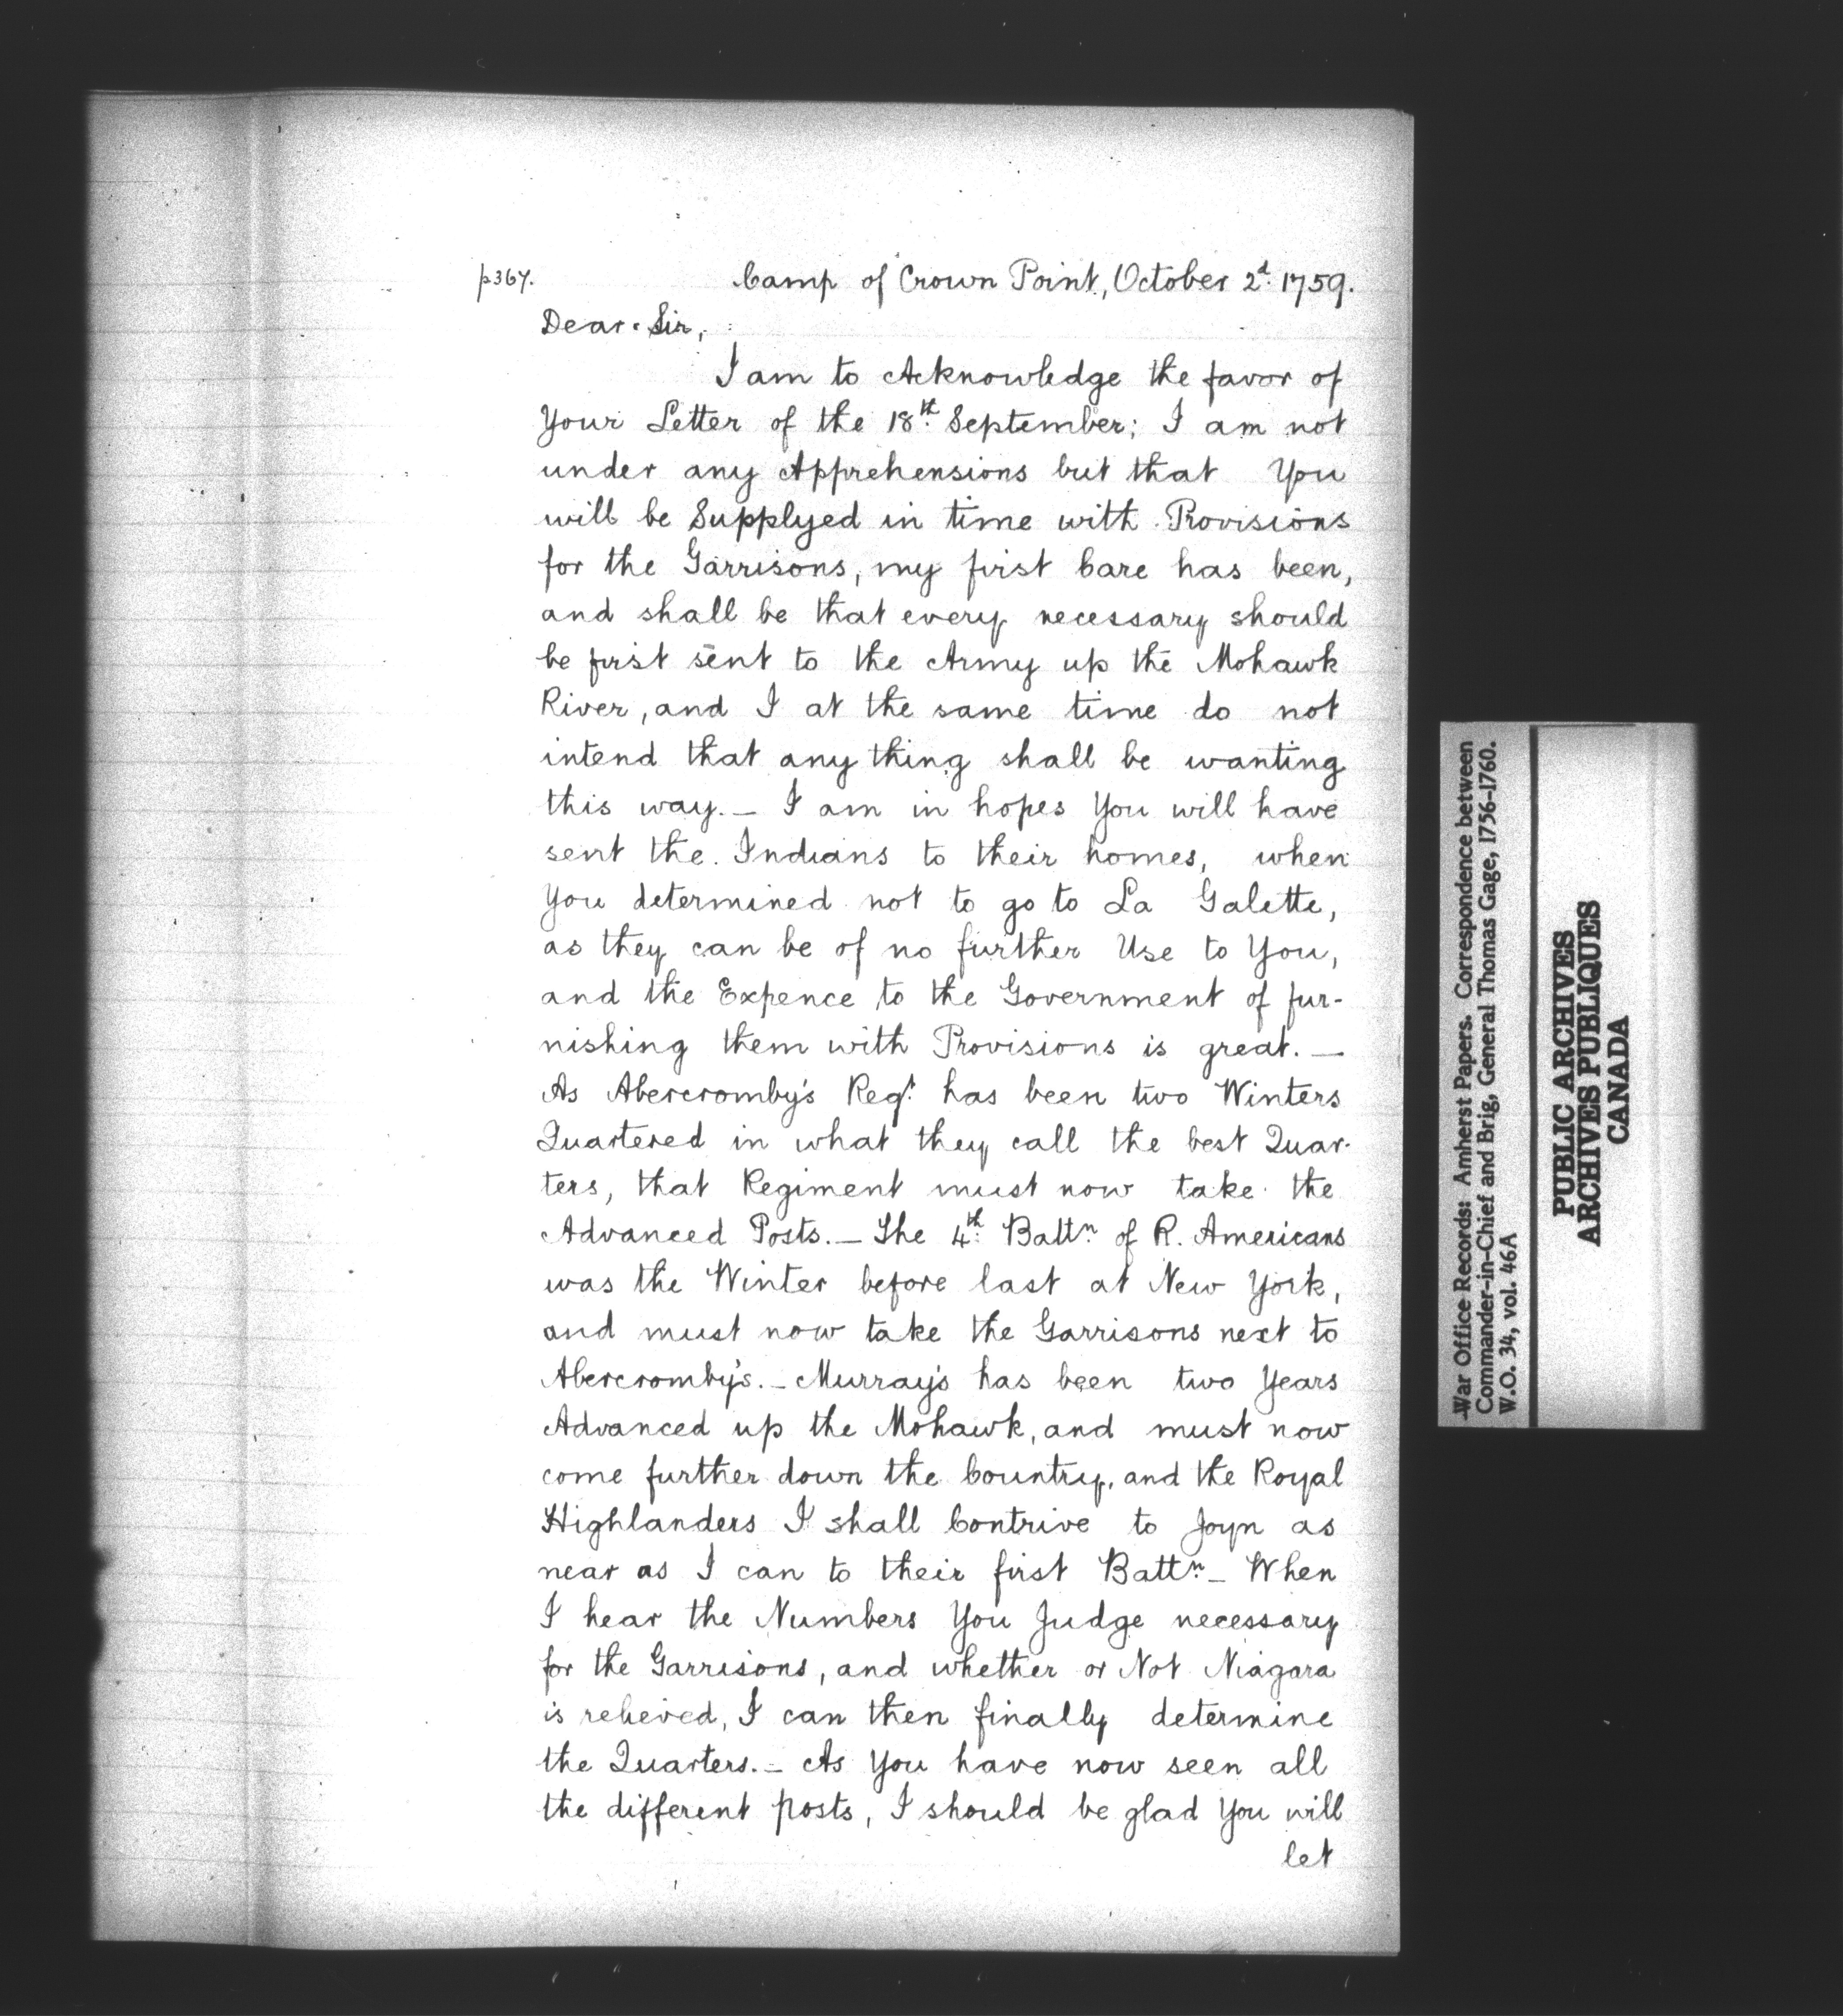 p367.
Camp of Crown Point, October 2d. 1759.
Dear Sir,
I am to Acknowledge the favor of
Your Letter of the 18th. September; I am not
under any Apprehensions but that You
will be Supplyed in time with Provisions
for the Garrisons, my first Care has been,
and shall be that every necessary should
be first sent to the Army up the Mohawk
River, and I at the same time do not
intend that any thing shall be wanting
this way. _ I am in hopes You will have
sent the Indians to their homes, when
You determined not to go to La Galette,
as they can be of no further Use to You,
and the Expence to the Government of fur-
nishing them with Provisions is great. _
As Abercromby's Regt. has been two Winters
Quartered in what they call the best Quar-
ters, that Regiment must now take the
Advanced Posts. _ The 4th. Battn. of R. Americans
was the Winter before last at New York,
and must now take the Garrisons next to
Abercromby's. _ Murray's has been two Years
Advanced up the Mohawk, and must now
come further down the Country, and the Royal
Highlanders I shall Contrive to Joyn as
near as I can to their first Battn. _ When
I hear the Numbers You Judge necessary
for the Garrisons, and whether or Not Niagara
is relieved, I can then finally determine
the Quarters. _ As You have now seen all
the different posts, I should be glad You will
let
War Office Records: Amherst Papers. Correspondence between
Commander-in-Chief and Brig, General Thomas Gage, 1756-1760.
W.O. 34, vol. 46A
PUBLIC ARCHIVES
ARCHIVES PUBLIQUES
CANADA